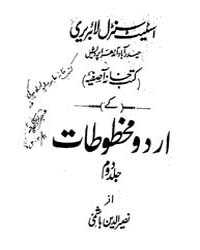 اسٹیٹ سنٹرل لائبریری
حیدرآباد آندھرا پردیش
(کتب خانہ آصفیہ)
کے
اردو مخطوطات
جلد دوم
از
نصیر الدین ہاشمی